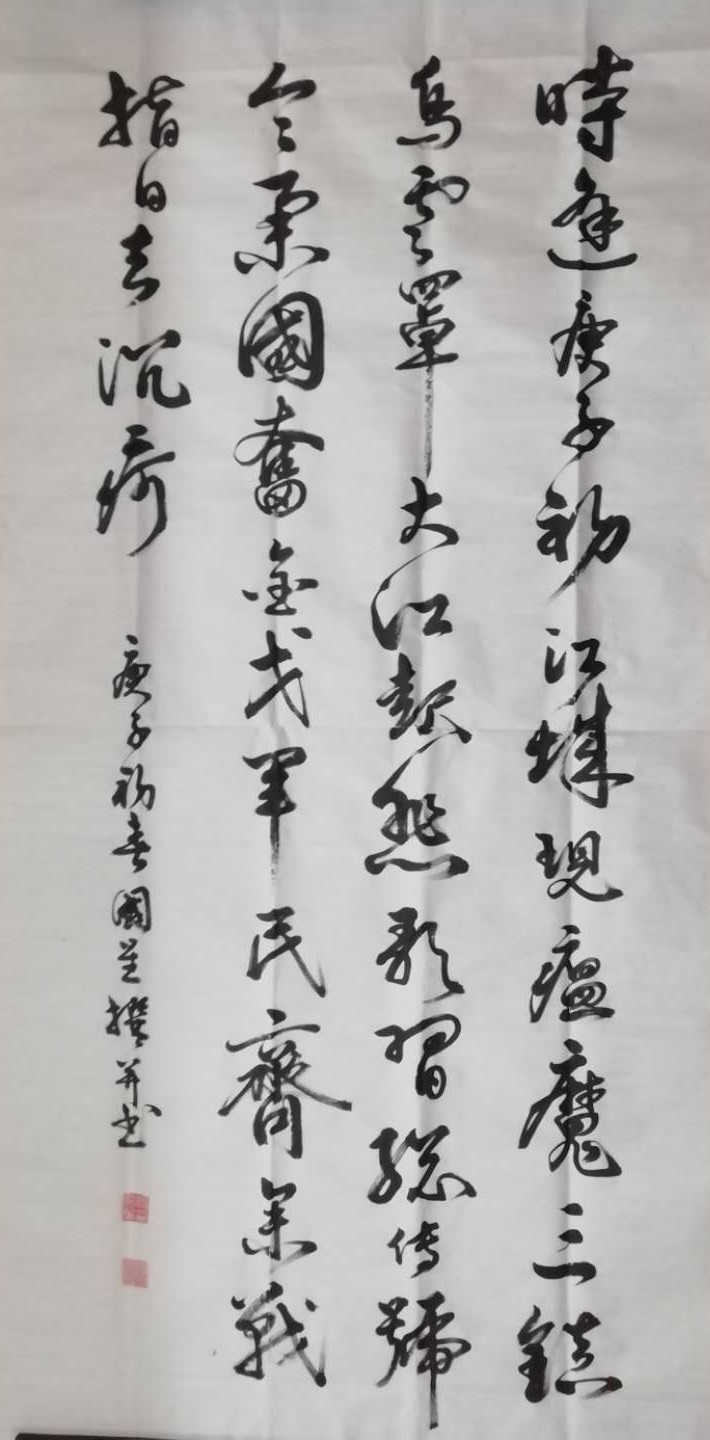 時逢庚子初江城現瘟魔三鎮
烏雲罩大江起悲歌習總傳號
令舉國奮金戈軍民齊戰
指日去沉疴
庚子初春國撰并書